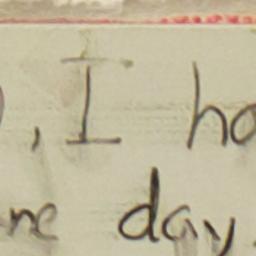 , I ho
ne day.